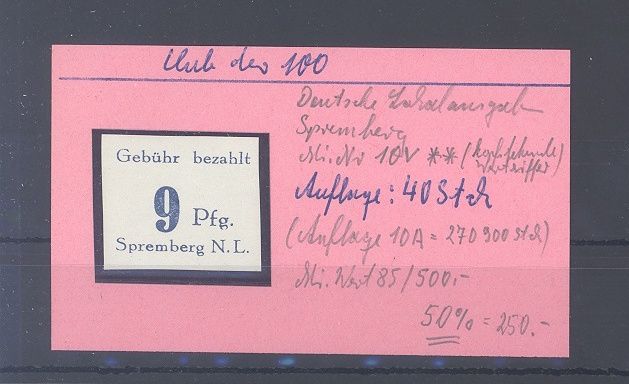 Club der 100
Deutsche Lokalausgabe
Spremberg
Mi. Nr 10V ** (kopfstehende
Wertziffer)
Auflage: 40 Stck
(Auflage 10A = 270 900 Stck)
Mi. Wert 85/500.-
50% = 250.-
Gebühr bezahlt
9 Pfg.
Spremberg N.L.